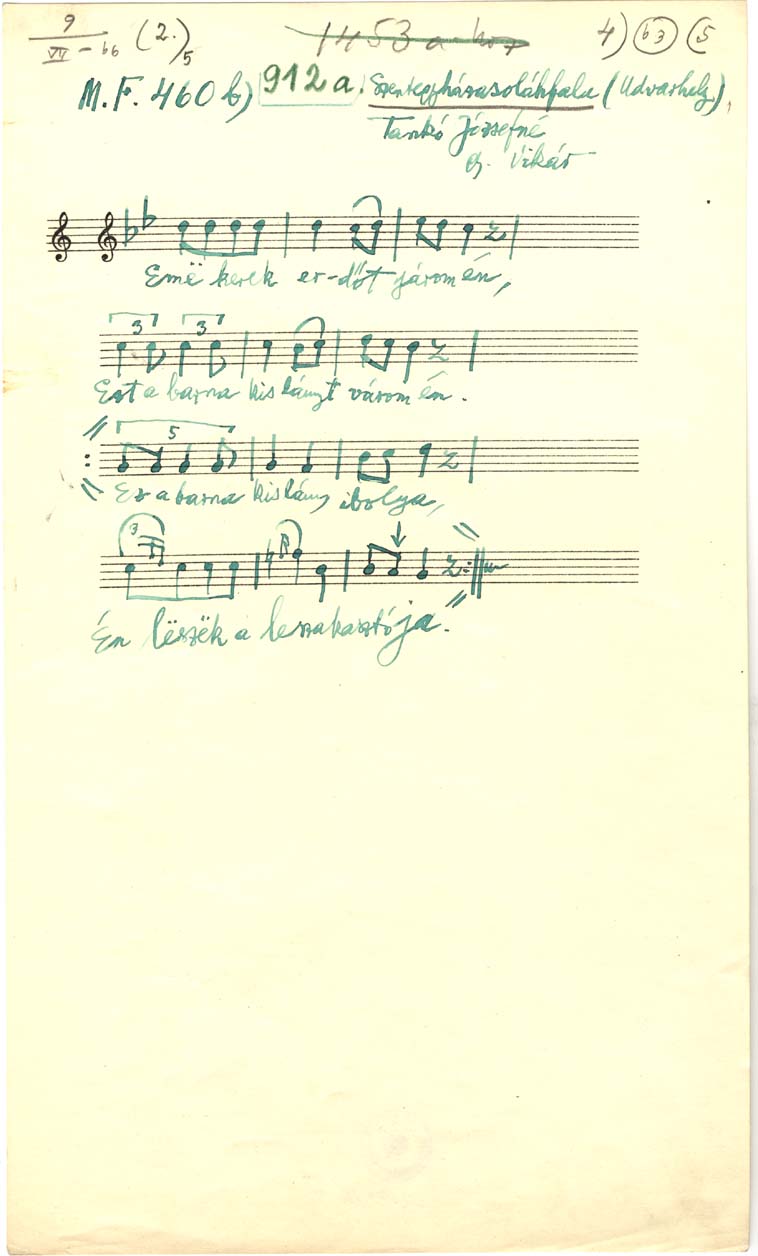 9
VII - b6 (2.)5 1453 a-hoz 4) b3 (5
M.F. 460 b) 912 a. Szentegyházasoláhfalu (Udvarhely),
Tankó Józsefné
gy. Vikár
Emë kerek er-dőt járom én,
3 3
Ezt a barna kis lányt várom én.
5
Ez a barna kis lány ibolya,
3
Én lëszëk a leszakasztója.